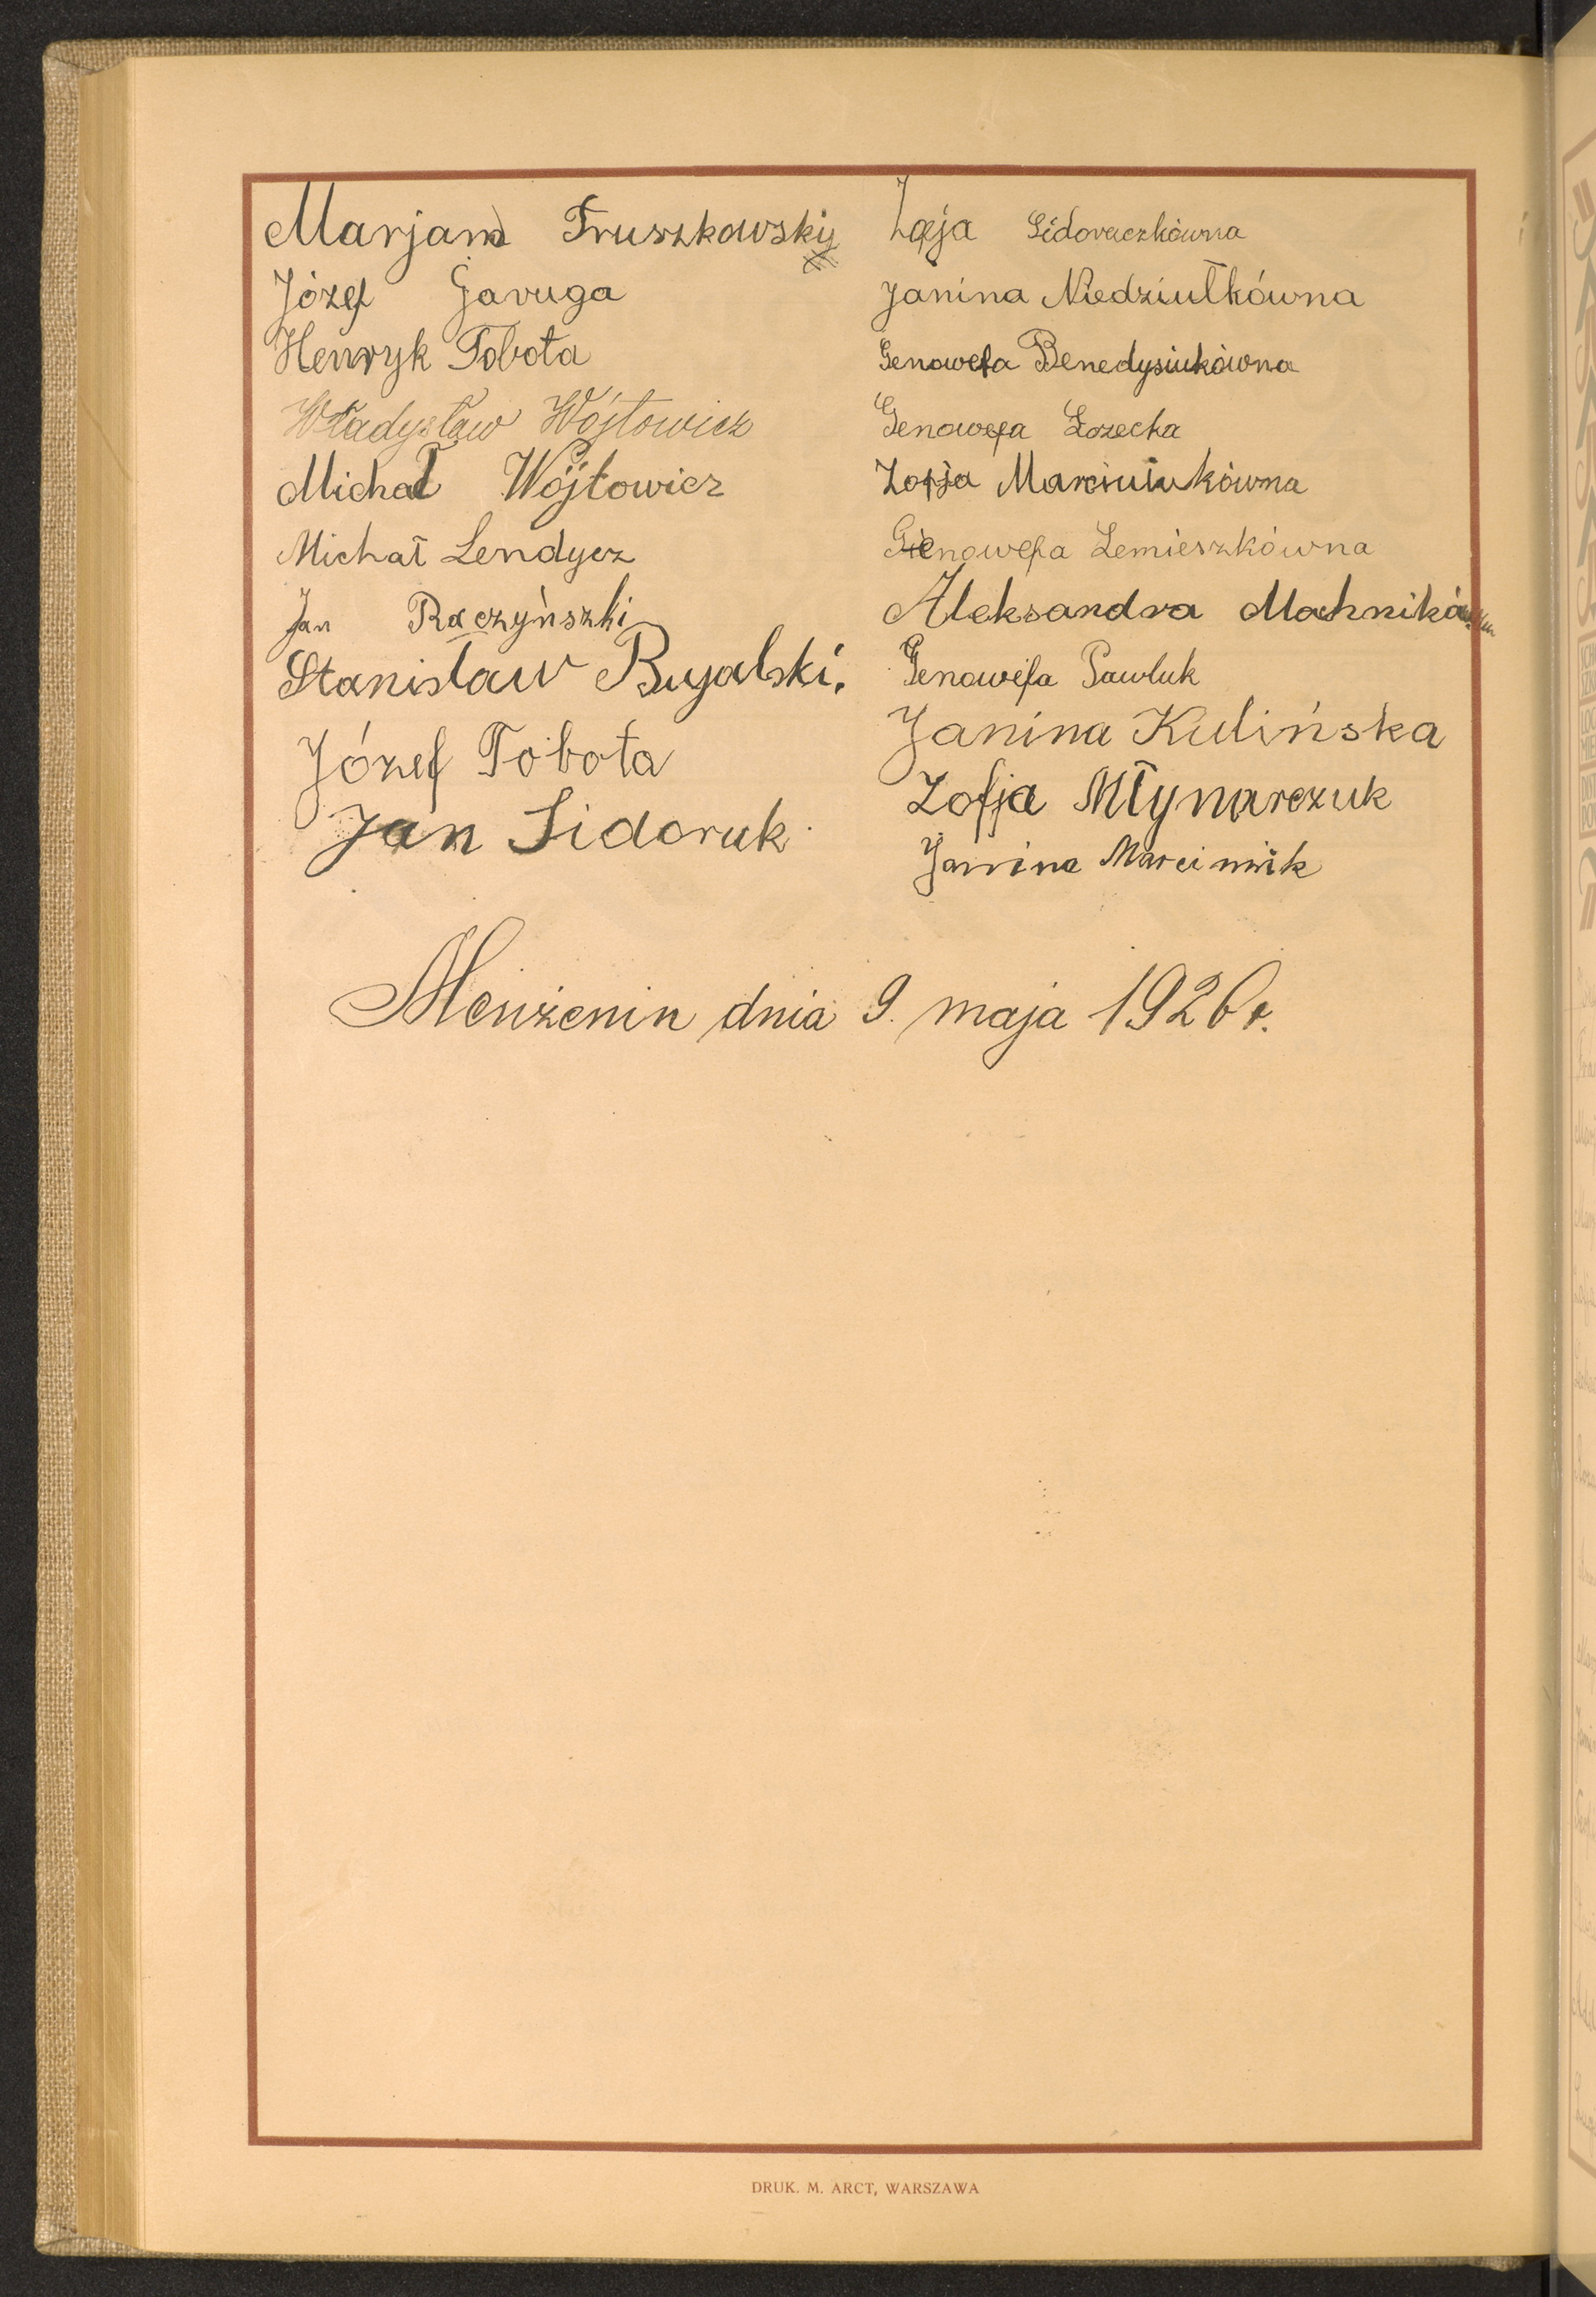 Marjan Truszkowski
Józef Gavuga
Henryk Tobota
Władysław Wójtowicz
Michał Wójtowicz
Michał Lendycz
Jan Raczyńszki
Stanisław Bujalski.
Józef Tobota
Jan Sidoruk
Zofja Sidoraczkówna
Janina Niedziułkówna
Genowefa Benedysiukówna
Genowefa Łozecka
Zofja Marciniukówna
Gienowefa Lemieszkówna
Aleksandra
Genowefa Pawluk
Janina Kulińska
Zofja Młynarczuk
Janina Marciniuk
Menżenin dnia 9. maja 1926 r.
DRUK. M. ARCT, WARSZAWA